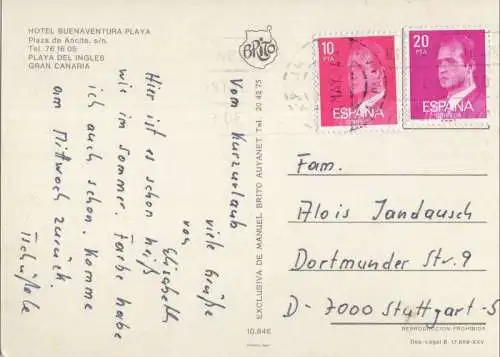 HOTEL BUENAVENTURA PLAYA
Plaza de Ansite, s/n.
Tel. 76 16 05
PLAYA DEL INGLES
GRAN CANARIA
BRITO
10
PTA
ESPAÑA
CORREOS
20
PTA
ESPAÑA
CORREOS
Vom Kurzurlaub
viele Grüße
von
Elisabeth
Hier ist es schon heiß
wie im Sommer. Farbe habe
ich auch schon. Komme
am Mittwoch zurück.
Tschüßle
EXCLUSIVA DE MANUEL BRITO AUYANET Tel. 20 42 75
Fam.
Alois Jandausch
Dortmunder Str. 9
D-7000 Stuttgart-S
10.646
REPRODUCCION PROHIBIDA
Dep. Legal B. 17.659-XXV